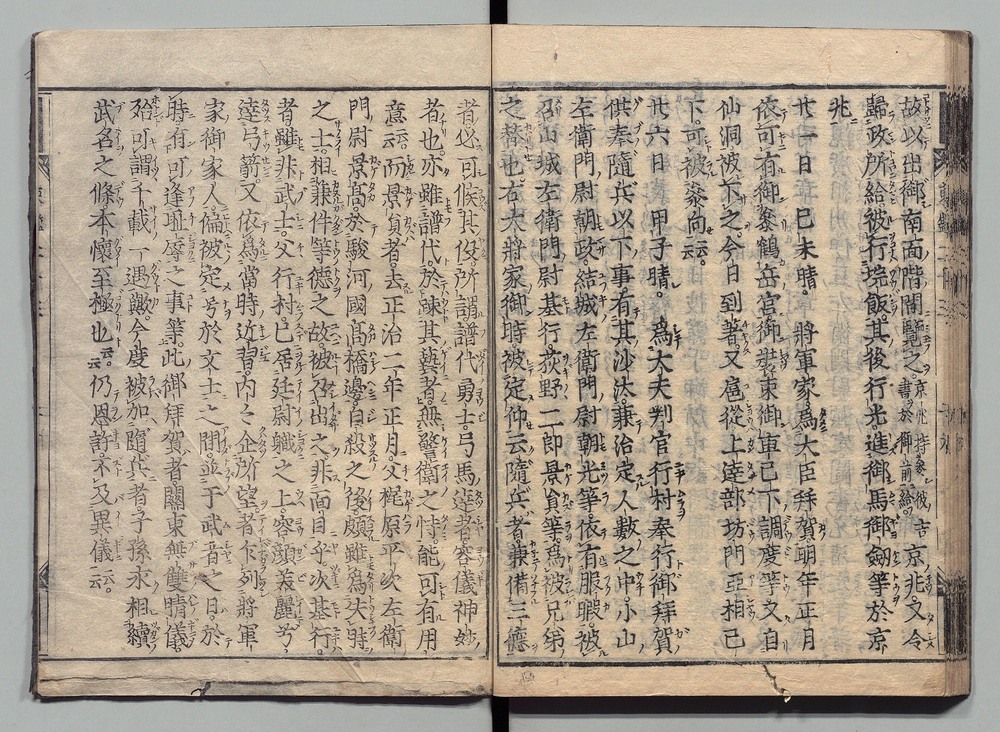 故以出御南面階間覽之京兆持參彼吉書於御前給。京兆又令
歸政所給被行垸飯其後行光進御馬御劔等於京
兆
廿一日己未晴。將軍家爲大臣拜賀明年正月
依可有御參鶴岳宮御裝束御車已下調度等又自
仙洞被下之今日到著又扈從上達部坊門亞相已
下。可被參向云云。
廿六日甲子晴。爲大夫判官行村奉行御拜賀
供奉隨兵以下事有其沙汰兼治定人數之中小山
左衛門尉朝政結城左衛門尉朝光等依有服暇被
召山城左衛門尉基行荻野二郎景員等爲被兄弟
之替也右大將家御時被定仰云隨兵者兼備三德
者必可候其役所謂譜代勇士。弓馬達者容儀神妙
者也亦雖譜代。於疎其藝者。無警衛之恃能可有用
意云云。而景員者去正治二年正月父梶原平次左衛
門尉景髙於駿河國髙橋邊自殺之後頗雖爲失時
之士。相兼件等德之故被召出之非面目乎次基行
者雖非武士。父行村已居廷尉職之上。容顔羙麗兮
達弓箭又依爲當時近習。內々企所望者乍列將軍
家御家人偏被定号於文士之間。並于武者之日。於
時有可逢耻辱之事等。此御拜賀者關東無雙晴儀
殆可謂千載一遇歟今度被加隨兵者。子孫永相續
武名之條本懷至極也云云。仍恩許。不及異儀云云。